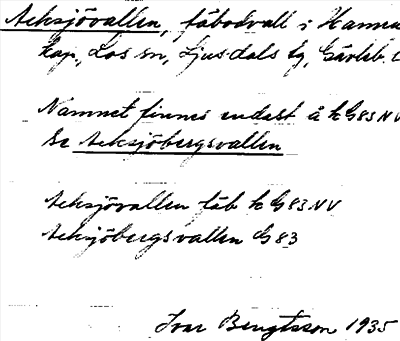 Acksjövallen, fäbodvall i Hamra
kap., Los sn, Ljusdals tg, Gävleb. l
Namnet finnes endast å k G83 NV
Se Acksjöbergsvallen
Acksjövallen fäb k G 83 NV
Acksjöbergsvallen G 83
Ivar Bengtsson 1935